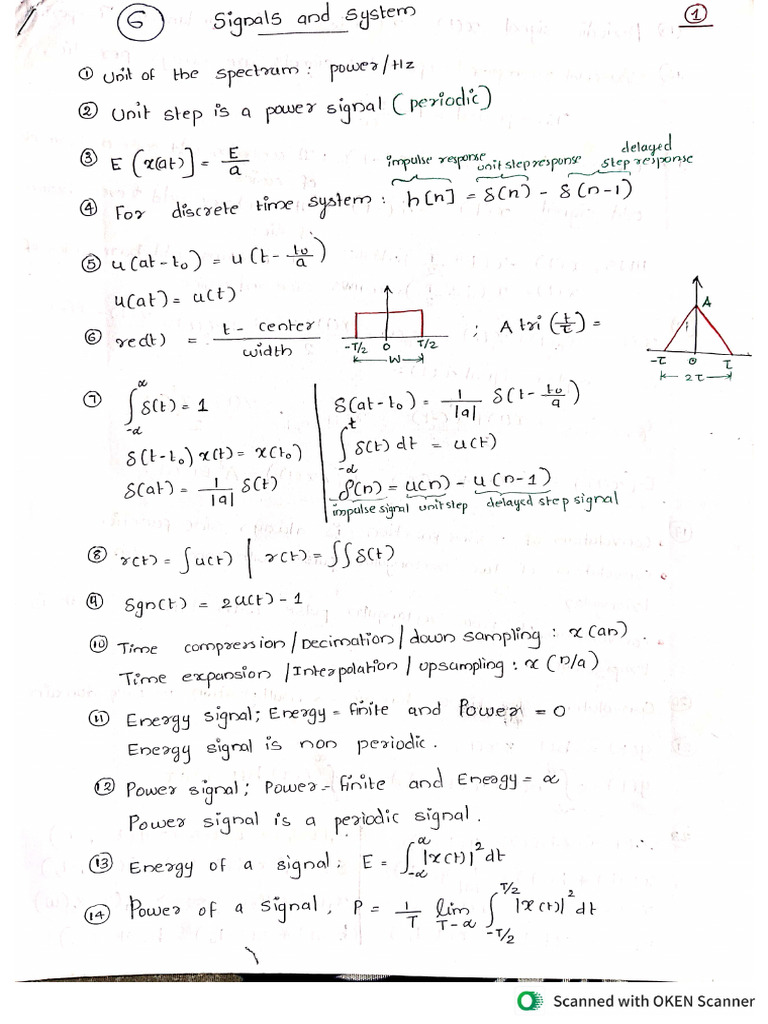 6 Signals and System 1
① Unit of the spectrum: power/Hz
② Unit step is a power signal (periodic)
③ E [x(at)] = E/a
impulse response unit step response delayed step response
④ For discrete time system: h[n] = δ(n) - δ(n-1)
⑤ u(at-t₀) = u(t - t₀/a)
u(at) = u(t)
⑥ rect) = t - center / width
-T/2 0 T/2
W
; A tri (t/τ) =
A
-τ 0 τ
2τ
⑦ ∫_{-α}^{α} δ(t) = 1
δ(t-t₀) x(t) = x(t₀)
δ(at) = 1/|a| δ(t)
δ(at-t₀) = 1/|a| δ(t - t₀/a)
∫_{-α}^{t} δ(t) dt = u(t)
δ(n) = u(n) - u(n-1)
impulse signal unit step delayed step signal
⑧ r(t) = ∫u(t) | r(t) = ∫∫δ(t)
⑨ Sgn(t) = 2u(t) - 1
⑩ Time compression/Decimation/down sampling: x(an).
Time expansion/Interpolation/upsampling: x(n/a)
⑪ Energy signal; Energy = finite and Power = 0
Energy signal is non periodic.
⑫ Power signal; Power = finite and Energy = α
Power signal is a periodic signal.
⑬ Energy of a signal; E = ∫_{-α}^{α} |x(t)|² dt
⑭ Power of a signal, P = 1/T lim_{T-α} ∫_{-T/2}^{T/2} |x(t)|² dt
Scanned with OKEN Scanner